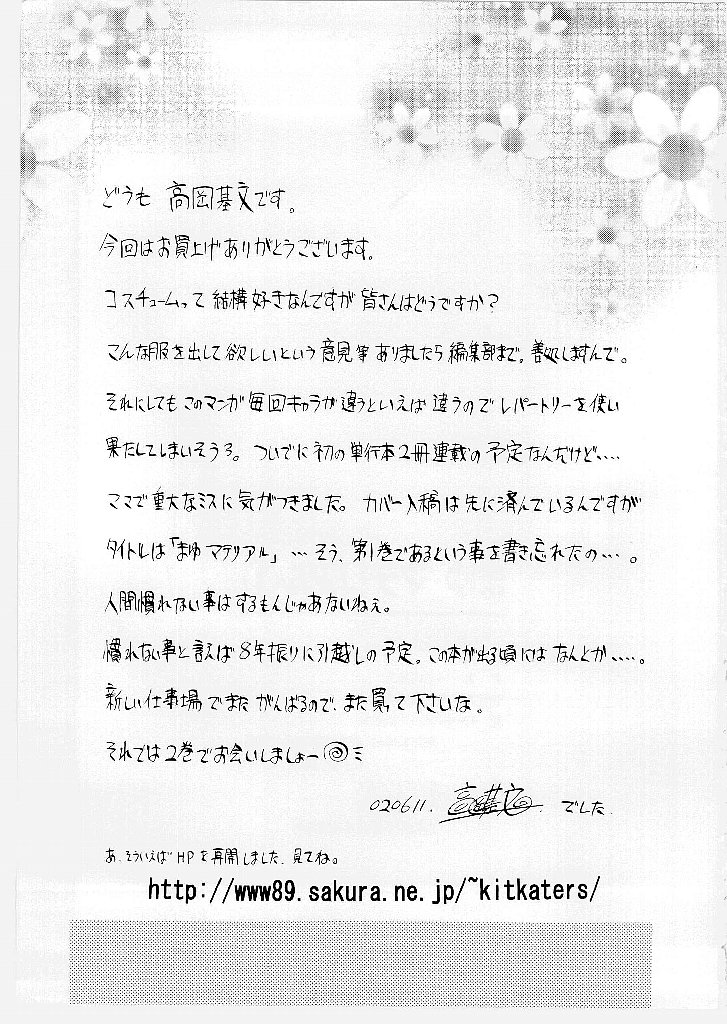 どうも 高岡基文です。
今回はお買上げありがとうございます。
コスチュームって結構好きなんですが皆さんはどうですか?
こんな服を出して欲しいという意見等ありましたら編集部まで。善処しますんで。
それにしてもこのマンガ毎回キャラが違うといえば違うのでレパートリーを使い
果たしてしまいそうっ。ついでに初の単行本2冊連載の予定なんだけど‥‥
ママで重大なミスに気がつきました。カバー入稿は先に済んでいるんですが
タイトルは「まゆマテリアル」…そう、第1巻であるという事を書き忘れたの…。
人間慣れない事はするもんじゃあないねぇ。
慣れない事と言えば8年振りに引越しの予定。この本が出る頃にはなんとか‥‥。
新しい仕事場でまたがんばるので、また買って下さいな。
それでは2巻でお会いしましょー
020611. 高岡基文 でした.
あ、そういえばHPを再開しました、見てね。
http://www89.sakura.ne.jp/~kitkaters/